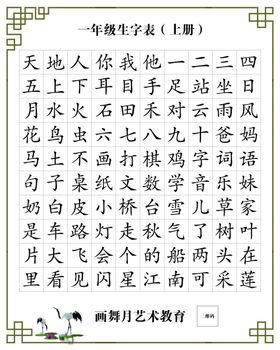 一年级生字表（上册）
天地人你我他一二三四
五上下耳目手足站坐日
月水火石田禾对云雨风
花鸟虫六七八九十爸妈
马土不画打棋鸡字词语
句子桌纸文数学音乐妹
奶白皮小桥台雪儿草家
是车路灯走秋气了树叶
片大飞会个的船两头在
里看见闪星江南可采莲
画舞月艺术教育
二维码